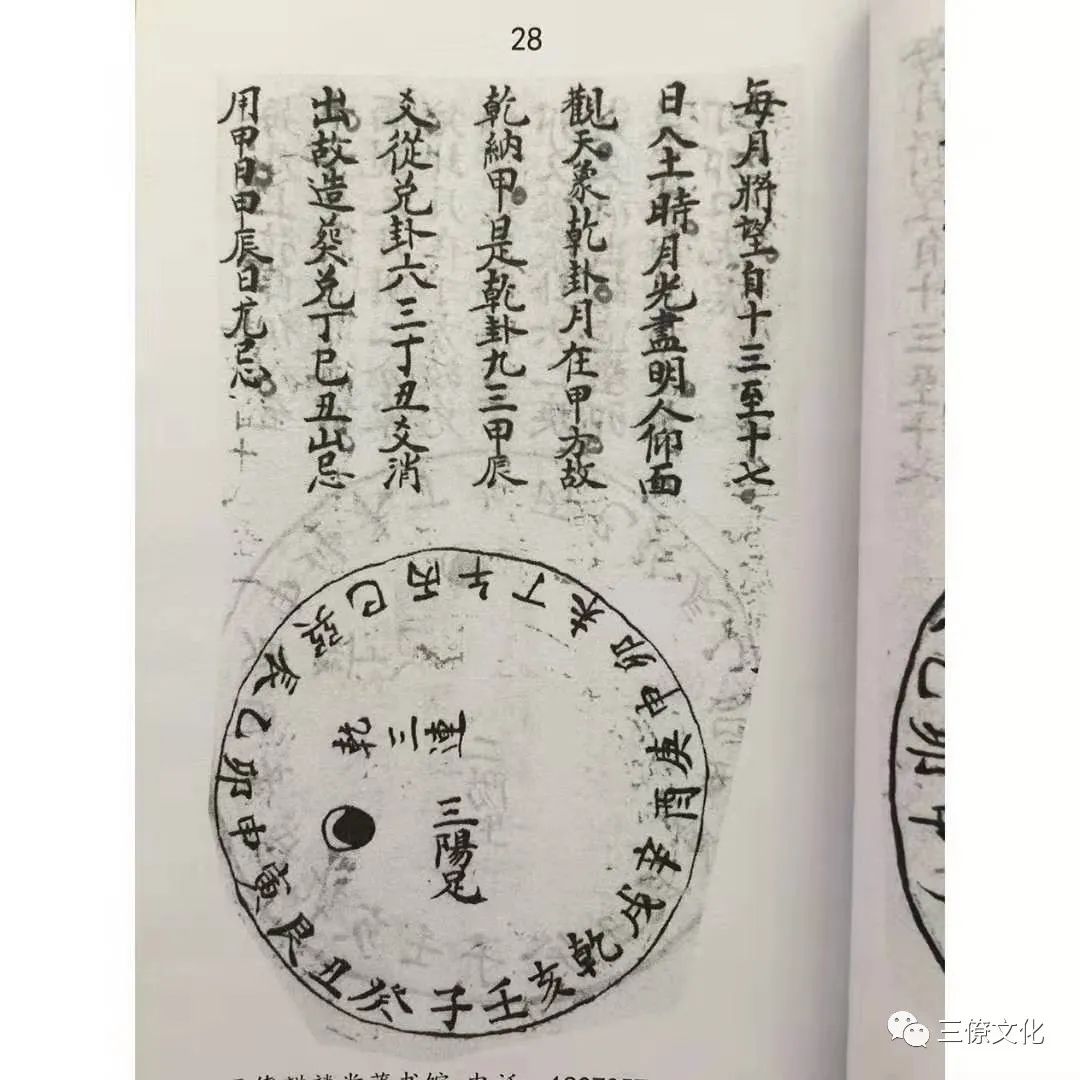 28
每月將望自十三至十七
日入土時月光盡明人仰面
觀天象乾卦月在甲方故
乾納甲是乾卦九三甲辰
爻從兌卦六三丁丑爻消
出故造葵兌丁巳丑山忌
用甲日甲辰日尤忌
午丁未卯申庚酉辛戌乾亥壬子癸丑艮寅甲卯乙辰巽巳丙
乾三連
三陽足
乙卯甲
三僚文化